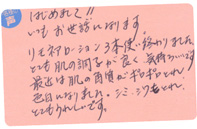 はじめまして!!
いつもお世話になります。
リモナローション3本使い終わりました。
とても肌の調子が良く気持ちいいです。
最近は肌の角質がポロポロとれ
色白になりました。シミ・シワもとれ
とてもうれしいです。